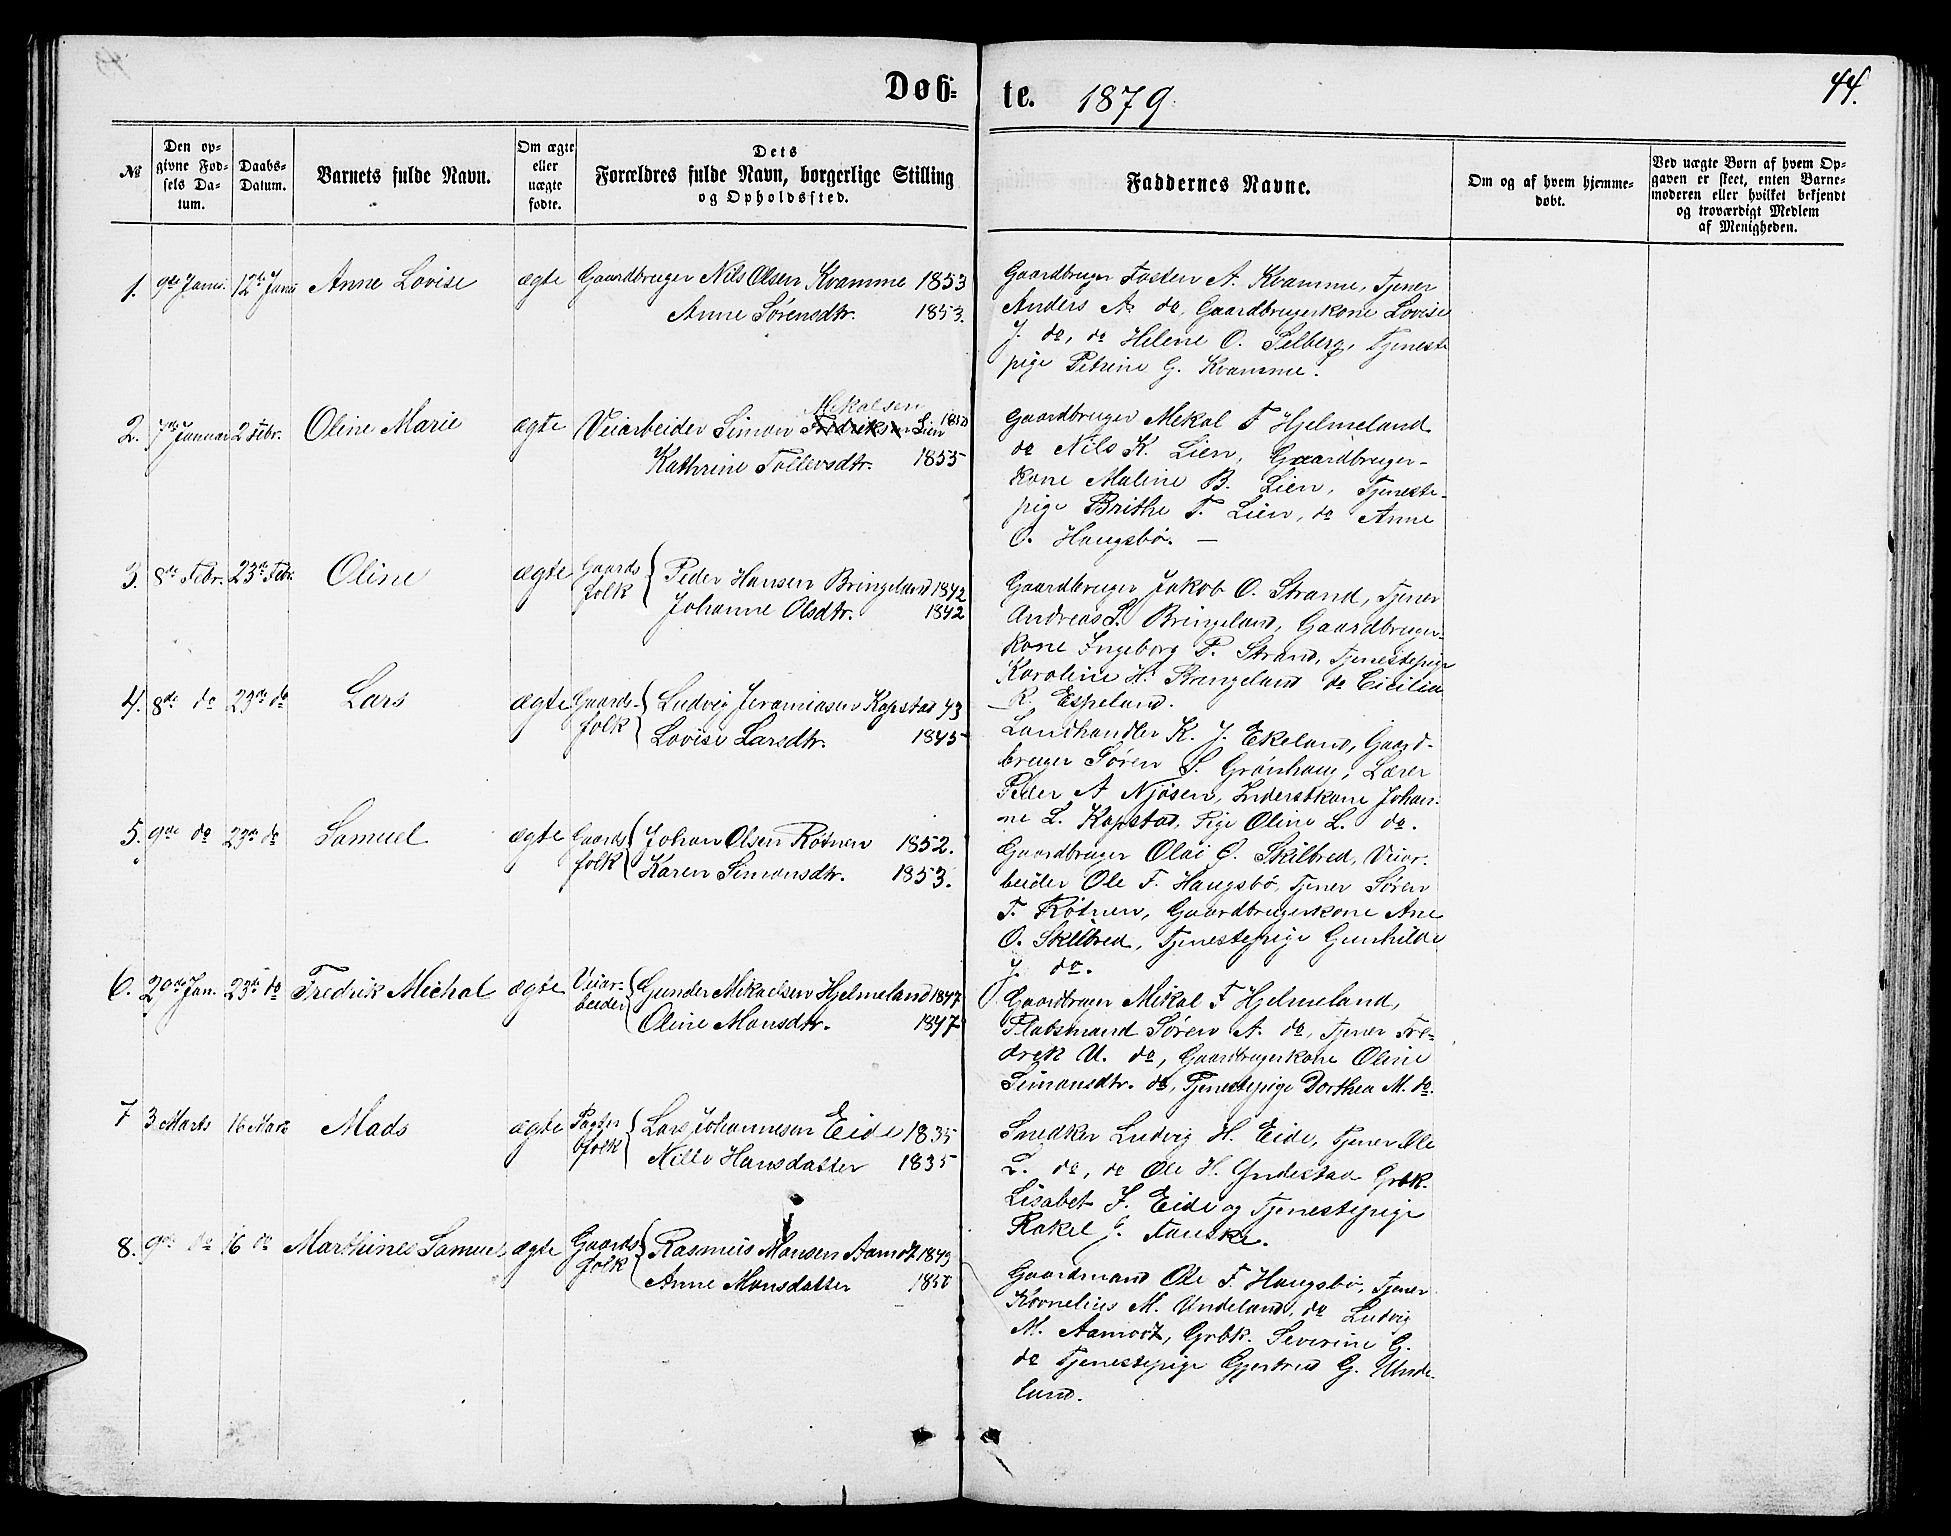 Døb-
te. 1879.
44.
№
Den opgivne Fødsels Datum.
Daabs-Datum.
Barnets fulde Navn.
Om ægte eller uægte fødte.
Dets Forældres fulde Navn, borgerlige Stilling og Opholdssted.
Faddernes Navne.
Om og af hvem hjemmedøbt.
Ved uægte Børn af hvem Opgaven er skeet, enten Barnemoderen eller hvilket bekjendt og troværdigt Medlem af Menigheden.
1. 9de Janu. 12te Janu Anne Lovise ægte Gaardbruger Nils Olsen Kvamme 1853
Anne Sørensdtr. 1853.
Gaardbruger Tosten A. Kvamme, Tjener
Anders A. do, Gaardbrugerkone Lovise
J. do, do Helene O. Selberg, Tjeneste
pige Petrine G. Kvamme.
2. 7de Januar 2 Febr. Oline Marie ægte Veiarbeider Simon Fredriksen Lien 1850
Mekalsen
Kathrine Tollevsdtr. 1855
Gaardbruger Mekal F Hjelmeland
do Nils K. Lien, Gaardbruger-
kone Maline B. Lien, Tjeneste-
pige Brithe T. Lien, do Anne
O. Haugsbø. —
3. 8de Febr. 23de Febr. Oline ægte Gaards
folk Peder Hansen Bringeland 1842
Johanne Olsdtr. 1842
Gaardbruger Jakob O. Strand, Tjener
Andreas S. Bringeland, Gaardbruger-
kone Ingeborg P. Strand, Tjenestepige
Karoline H. Bringeland do Cicilia
R. Espeland.
4. 8de do 23de do Lars ægte Gaards-
folk Ludvig Jeramiasen Kapstad 43
Lovise Larsdtr. 1845
Landhandler K. J. Ekeland, Gaard-
bruger Søren S. Grønhaug, Lærer
Peder A Njøsen, Inderstkone Johan-
ne L. Kapstad, Pige Oline L. do.
5. 9de do 23de do Samuel ægte Gaards
folk Johan Olsen Rotnen 1852.
Karen Simonsdtr. 1853.
Gaardbruger Olai O. Skilbred, Veiar-
beider Ole F. Haugsbø, Tjener Søren
T. Røtnen, Gaardbrugerkone Ane
O. Skilbred, Tjenestepige Gunhilde
J. do.
6. 29de Jan. 23de do Fredrik Michal ægte Veiar-
beider Gunder Mikaelsen Hjelmeland 1847
Oline Monsdtr. 1847
Gaardbruger Mikal F Hjelmeland,
Pladsmand Søren A. do, Tjener Fre-
drek U. do, Gaardbrugerkone Oline
Simonsdtr. do, Tjenestepige Dorthea M. do.
7 3 Marts 16 Marts Mads ægte Pagter
folk Lars Johannesen Eide 1835
Nille Hansdatter 1835
Snedker Ludvig H. Eide, Tjener Ole
L. do, do Ole H. Yndestad Grbk.
Lisabet J. Eide og Tjenestepige
Rakel J. Fauske.
8. 9de do 16 do Marthines Samuel ægte Gaards
folk Rasmus Monsen Aamot 1849
Anne Monsdatter 1850
Gaardmand Ole F. Haugsbø, Tjener
Kornelius M. Undeland, do Ludvig
M. Aamodt, Grbk. Severine G.
do Tjenestepige Gjertrud G. Unde-
land.